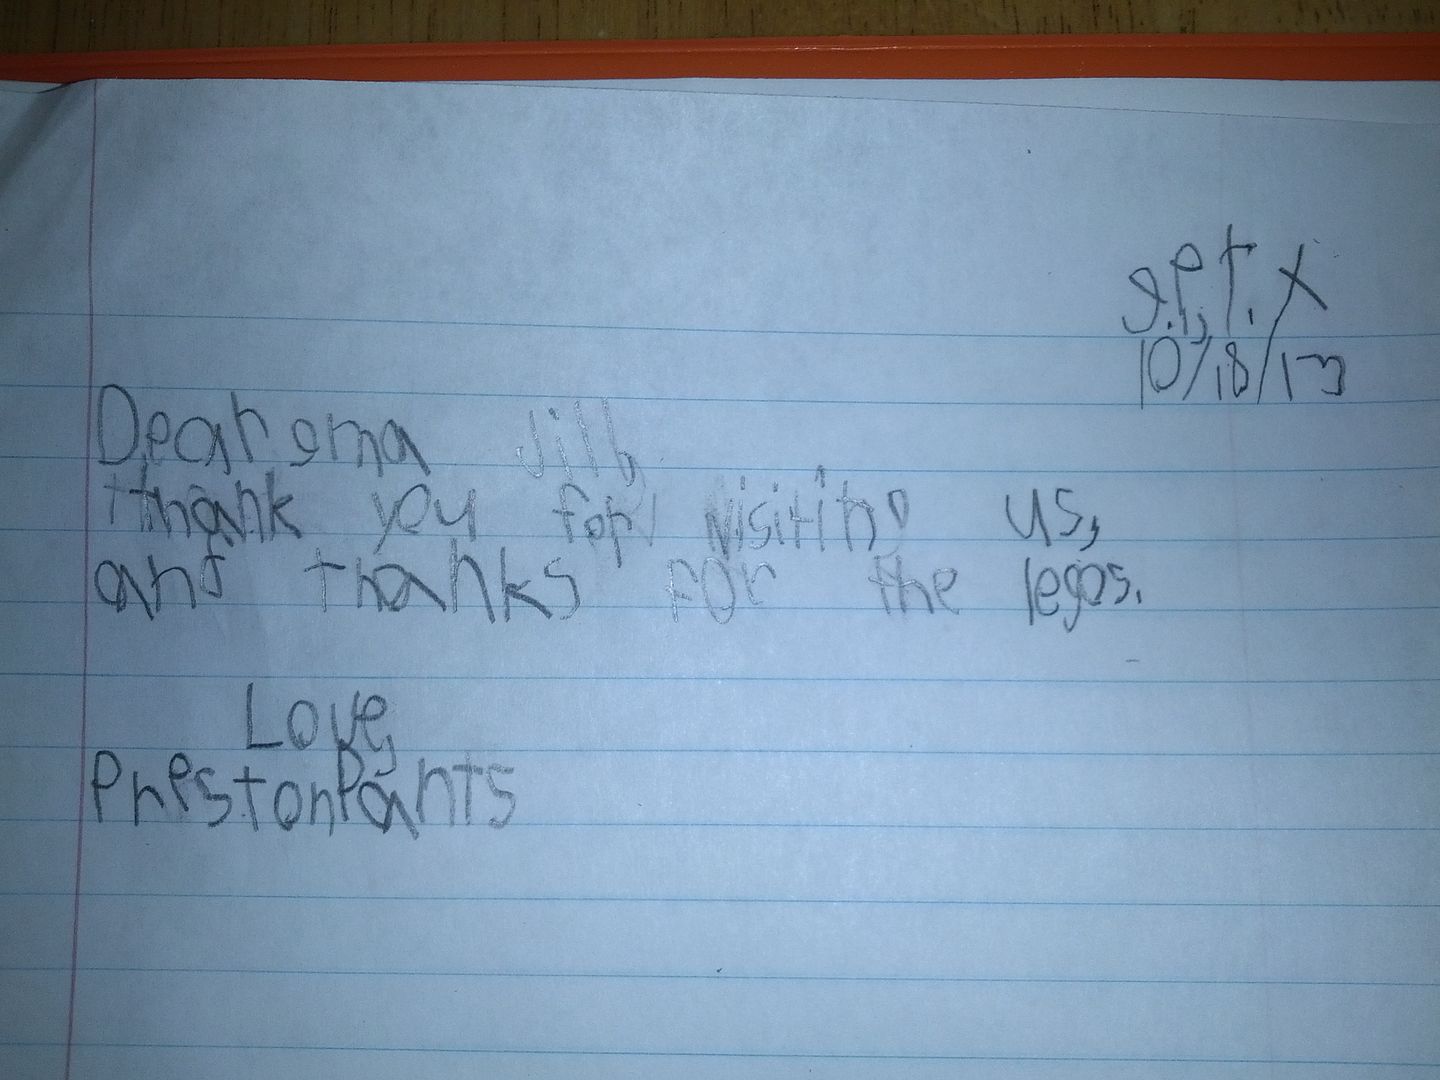 S.P,T.X
10/18/13
Dear oma Jill,
thank you for visiting us,
and thanks for the legos.
Love,
PrestonPants